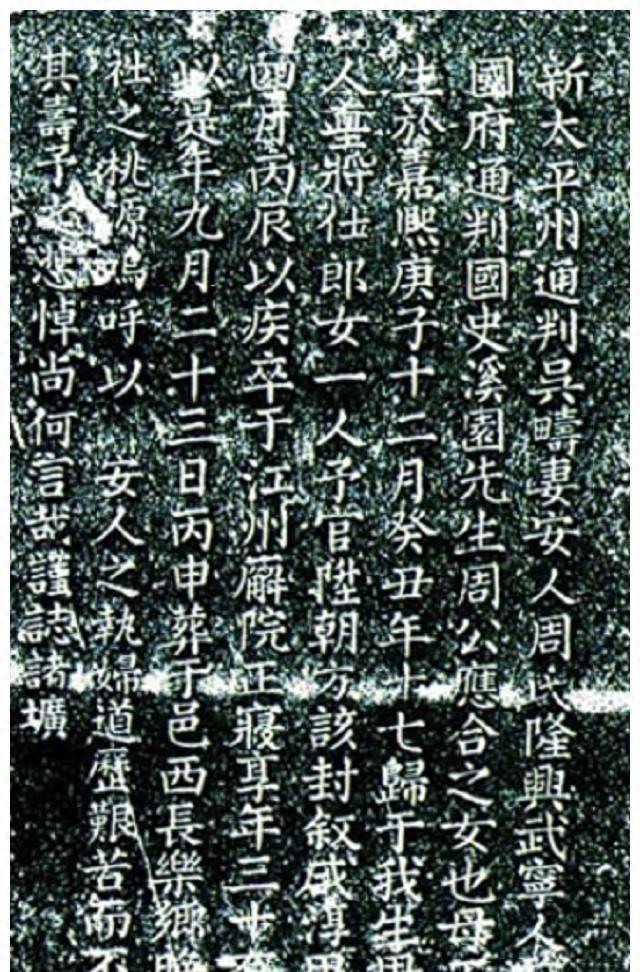 新太平州通判吳疇妻安人周氏隆興武寧人
國府通判國史溪園先生周公應合之女也母
生於嘉熙庚子十二月癸丑年十七歸于我生男
人壐將仕郎女一人子官陞朝方該封叙咸淳甲
四月丙辰以疾卒于江州廨院正寢享年三十
以是年九月二十三日丙申葬于邑西長樂鄉
社之桃源嗚呼以 安人之執婦道歷艱苦而不
其壽予之悲悼尚何言哉謹誌諸壙